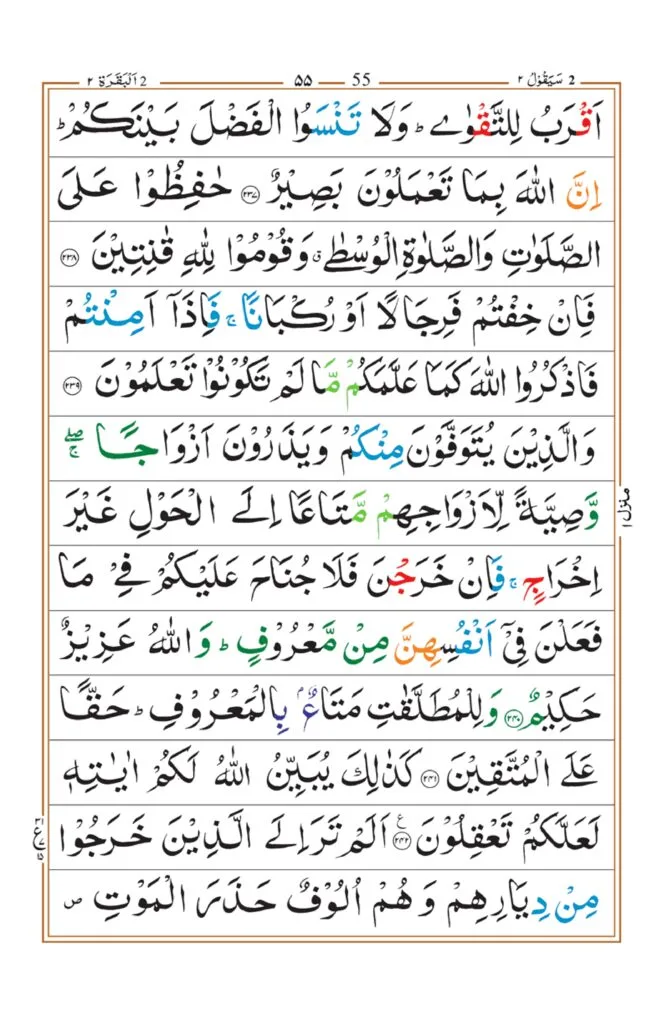 2 سَيَقُوْلُ ٢ 55 ۵۵ 2 اَلْبَقَرَة ٢
اَقْرَبُ لِلتَّقْوٰىؕ وَلَا تَنْسَوُا الْفَضْلَ بَيْنَكُمْؕ
اِنَّ اللّٰهَ بِمَا تَعْمَلُوْنَ بَصِيْرٌ ﴿۲۳۷﴾ حٰفِظُوْا عَلَى
الصَّلَوٰتِ وَالصَّلٰوةِ الْوُسْطٰى ق وَقُوْمُوْا لِلّٰهِ قٰنِتِيْنَ ﴿۲۳۸﴾
فَاِنْ خِفْتُمْ فَرِجَالًا اَوْ رُكْبَانًا ۚ فَاِذَاۤ اَمِنْتُمْ
فَاذْكُرُوا اللّٰهَ كَمَا عَلَّمَكُمْ مَّا لَمْ تَكُوْنُوْا تَعْلَمُوْنَ ﴿۲۳۹﴾
وَالَّذِيْنَ يُتَوَفَّوْنَ مِنْكُمْ وَيَذَرُوْنَ اَزْوَاجًا ۖۚ
وَّصِيَّةً لِّاَزْوَاجِهِمْ مَّتَاعًا اِلَى الْحَوْلِ غَيْرَ
اِخْرَاجٍ ۚ فَاِنْ خَرَجْنَ فَلَا جُنَاحَ عَلَيْكُمْ فِيْ مَا
فَعَلْنَ فِيْۤ اَنْفُسِهِنَّ مِنْ مَّعْرُوْفٍؕ وَاللّٰهُ عَزِيْزٌ
حَكِيْمٌ ﴿۲۴۰﴾ وَلِلْمُطَلَّقٰتِ مَتَاعٌ ۢ بِالْمَعْرُوْفِؕ حَقًّا
عَلَى الْمُتَّقِيْنَ ﴿۲۴۱﴾ كَذٰلِكَ يُبَيِّنُ اللّٰهُ لَكُمْ اٰيٰتِهٖ
لَعَلَّكُمْ تَعْقِلُوْنَ ﴿۲۴۲﴾ ع اَلَمْ تَرَ اِلَى الَّذِيْنَ خَرَجُوْا
مِنْ دِيَارِهِمْ وَهُمْ اُلُوْفٌ حَذَرَ الْمَوْتِ ص
منزل ١